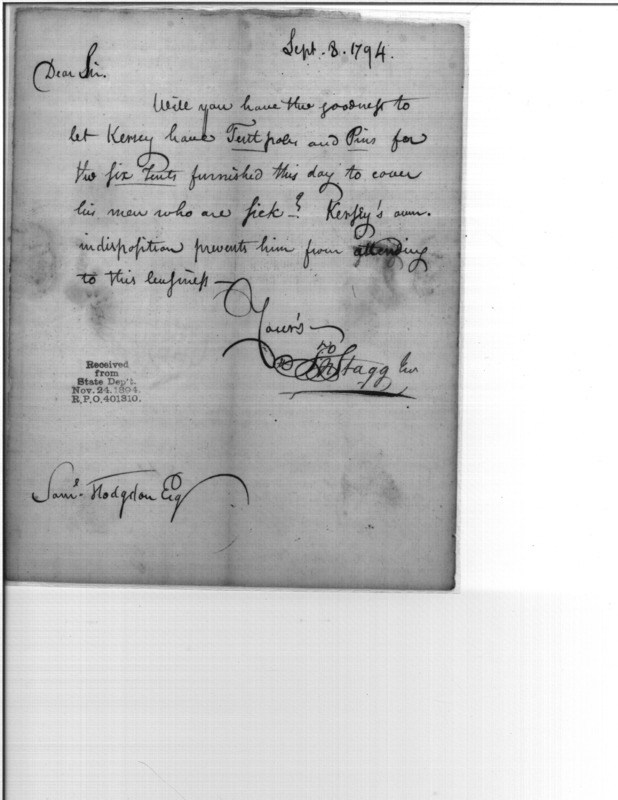 Sept. 8. 1794.
Dear Sir.
Will you have the goodness to
let Kersey have Tent poles and Pins for
the six tents furnished this day to cover
his men who are sick -? Kersey's own
indisposition prevents him from attending
to this business —
Yours —
Jn Stagg Jun
Received
from
State Dep't.
Nov. 24. 1894.
R.P.O. 401310.
Saml. Hodgdon Esq